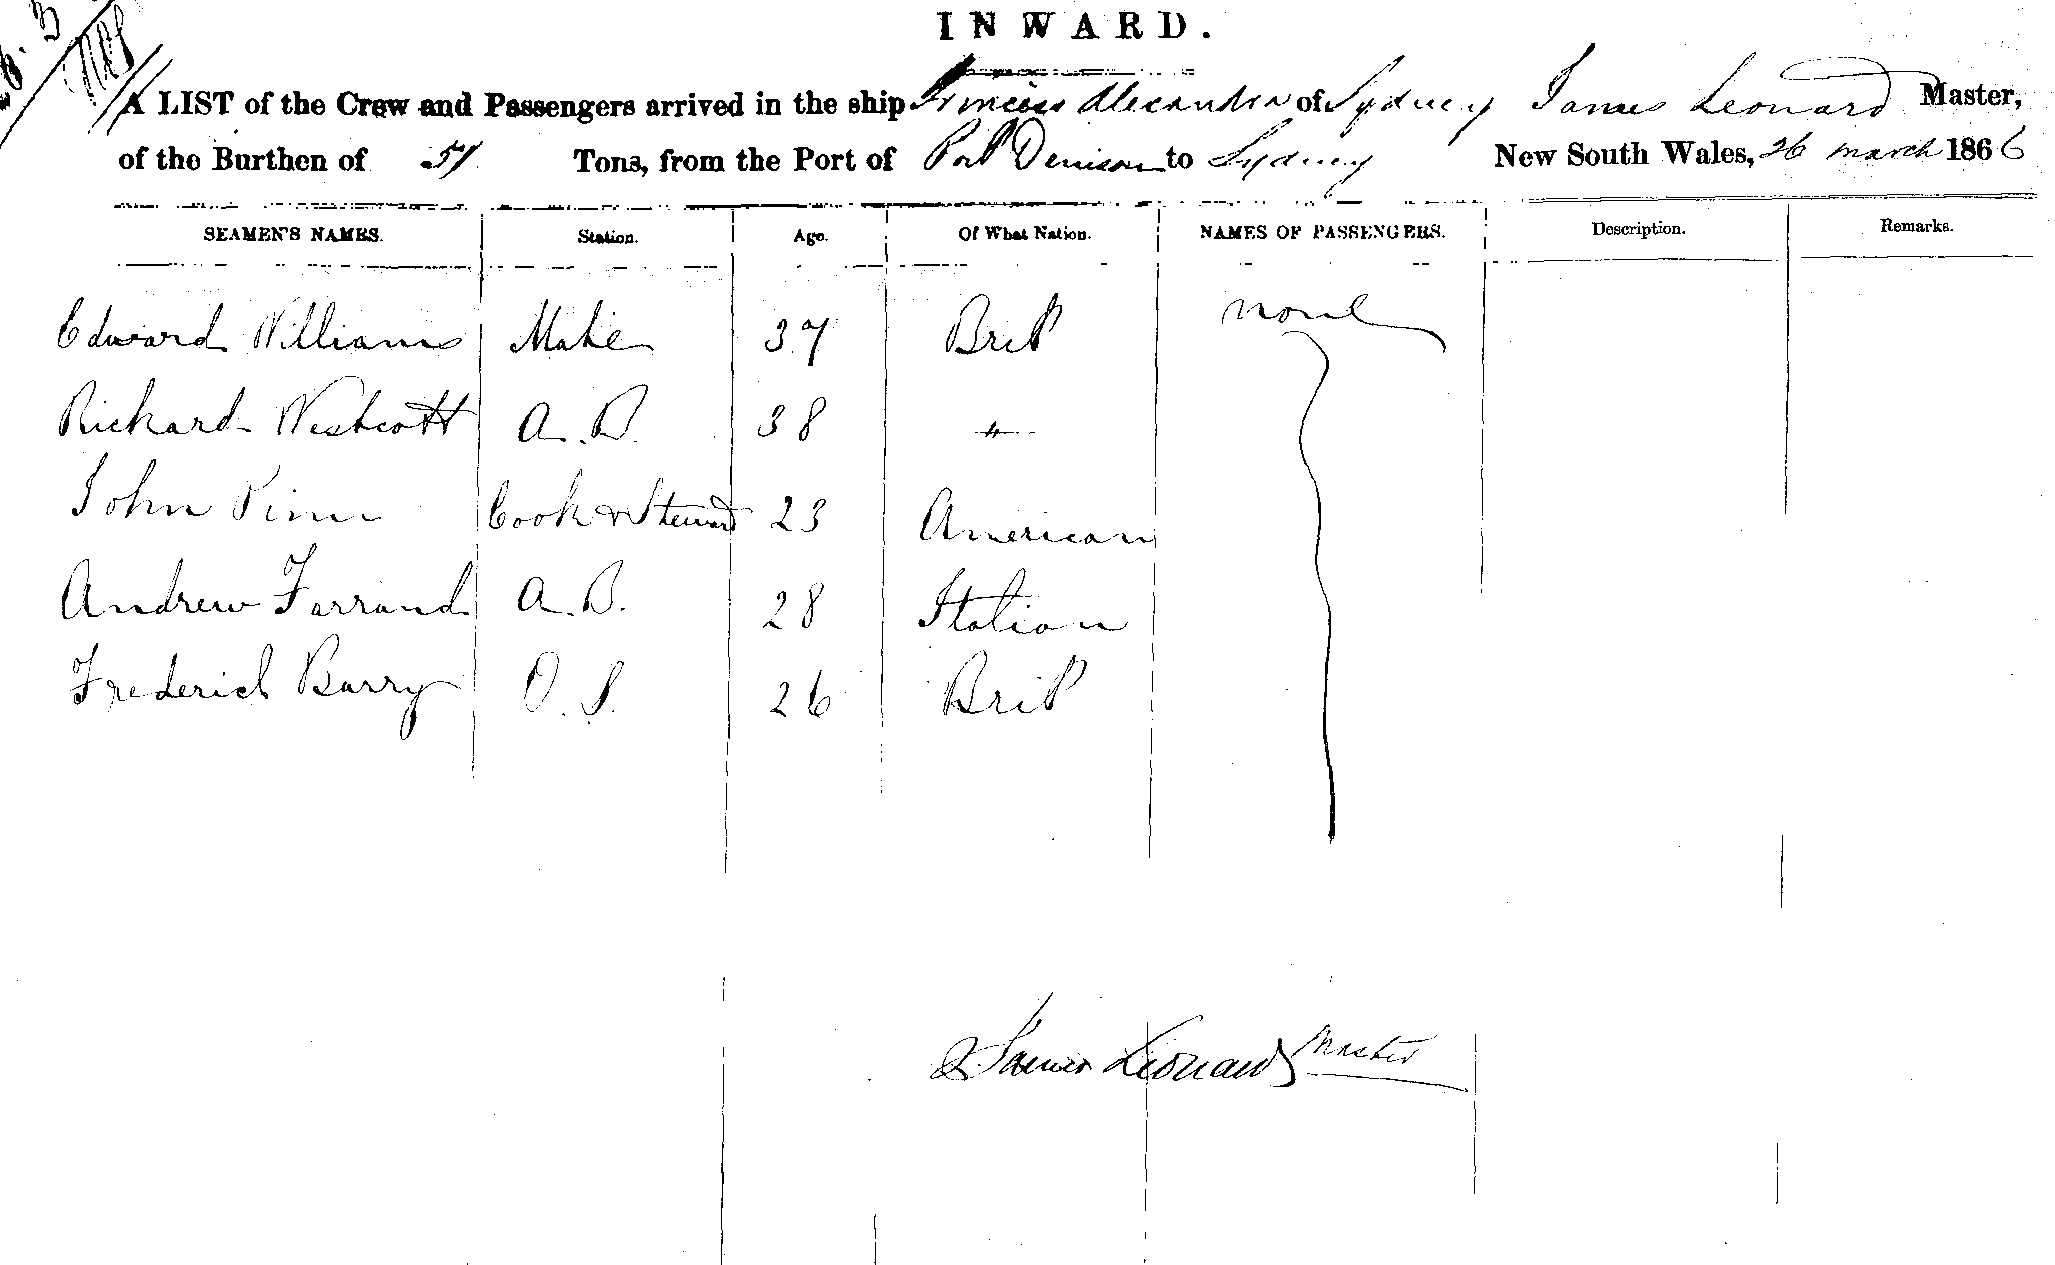 INWARD.
A LIST of the Crew and Passengers arrived in the ship Princess Alexandra of Sydney James Leonard Master,
of the Burthen of 51 Tons, from the Port of Port Denison to Sydney New South Wales, 26 march 1866
SEAMEN'S NAMES. Station. Age. Of What Nation. NAMES OF PASSENGERS. Description. Remarks.
Edward Williams Mate 37 Brit none
Richard Westcott A.B. 38 "
John Pinn Cook & Steward 23 American
Andrew Farrand A.B. 28 Italian
Frederick Barry O.S. 26 Brit
James Leonard Master